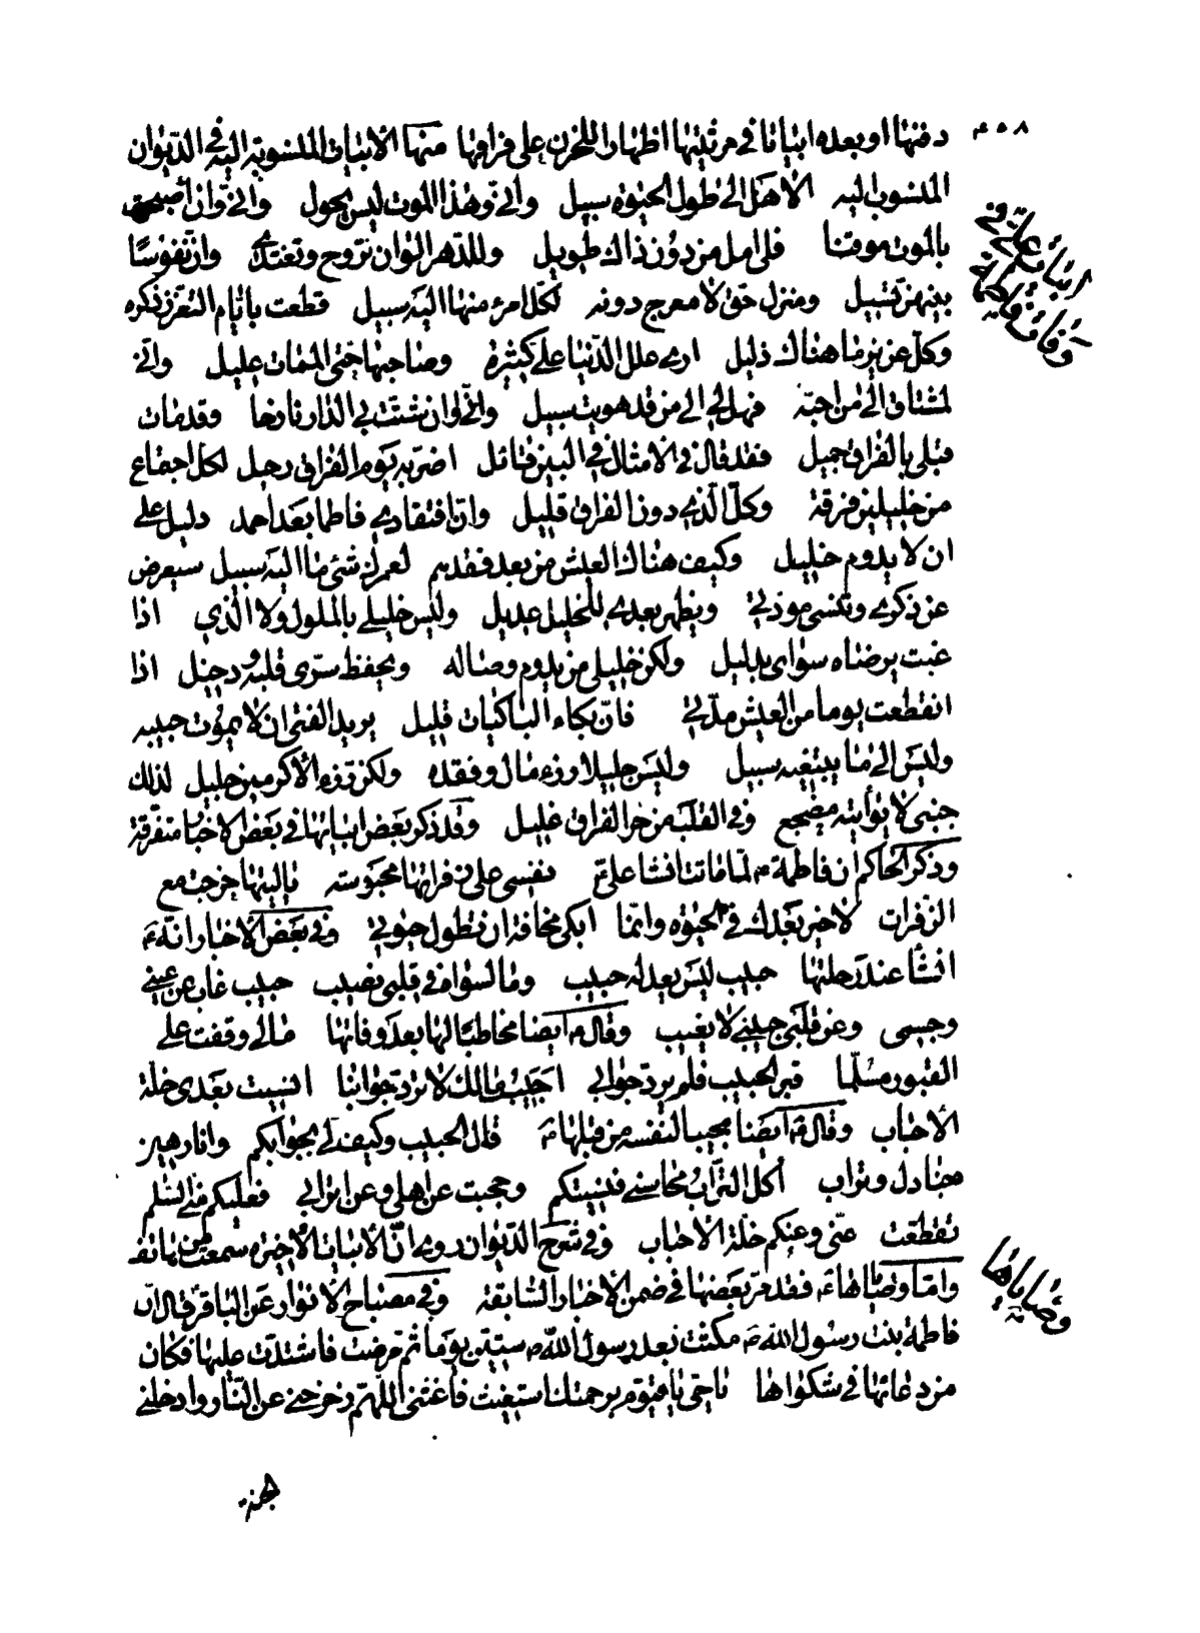 ٨٠٥
دفنها او بعده ابياتا في مرثيتها اظهارا للحزن على فراقها منها الابيات المنسوبة اليه في الديوان
المنسوب اليه الا هل الى طول الحيوة سبيل وانى وهذا الموت ليس يحول وانى وان اصبحت
بالموت موقنا فلى امل من دون ذاك طويل وللدهر الوان تروح وتغتدى وان نفوسا
بينهن تسيل ومنزل حق لا معرج دونه لكل امرء منها اليه سبيل قطعت بايام التعزز ذكره
وكل عزيز ما هناك ذليل ارى علل الدنيا على كثيرة وصاحبها حتى الممات عليل وانى
لمشتاق الى من احبه فهل لى الى من قد هويت سبيل وانى وان شتت بى الدار نازحا وقد مات
قبلى بالفراق جميل فقد قال في الامثال في البين قائل اضر به يوم الفراق رحيل لكل اجتماع
من خليلين فرقة وكل الذي دون الفراق قليل وان افتقادى فاطما بعد احمد دليل على
ان لا يدوم خليل وكيف هناك العيش من بعد فقدهم لعمرك شئ ما اليه سبيل سيعرض
عن ذكرى وتنسى مودتى ويظهر بعدى للخليل عديل وليس خليلى بالملول ولا الذي اذا
غبت يرضاه سواى بديل ولكن خليلى من يدوم وصاله ويحفظ سرى قلبه ودخيل اذا
انقطعت يوما من العيش مدتى فان بكاء الباكيات قليل يريد الفتى ان لا يموت حبيبه
وليس الى ما يبتغيه سبيل وليس جليلا رزء مال وفقده ولكن رزء الاكرمين جليل لذلك
جنبى لا يؤاتيه مضجع وفي القلب من حر الفراق غليل وقد ذكر بعض ابياتها في بعض الاخبار متفرقة
وذكر الحاكم ان فاطمة ع لما ماتت انشا على ع نفسى على زفراتها محبوسة ياليتها خرجت مع
الزفرات لاخير بعدك في الحيوة وانما ابكى مخافة ان تطول حيوتي وفي بعض الاخبار انه ع
انشأ عند رحلتها حبيب ليس يعدله حبيب وما لسواه في قلبى نصيب حبيب غاب عن عينى
وجسمى وعن قلبى حبيبى لا يغيب وقال ع ايضا مخاطبا لها بعد وفاتها مالى وقفت على
القبور مسلما قبر الحبيب فلم يرد جوابي احبيب مالك لا ترد جوابنا انسيت بعدى خلة
الاحباب وقال ع ايضا مجيبا لنفسه من قبلها ع قال الحبيب وكيف لى بجوابكم وانا رهين
جنادل وتراب أكل التراب محاسنى فنسيتكم وحجبت عن اهلى وعن اترابي فعليكم منى السلام
تقطعت عنى وعنكم خلة الاحباب وفي شرح الديوان روى ان الابيات الاخيرة سمعت من هاتف
واما وصاياها ع فقد مر بعضها في ضمن الاخبار السابقة وفي مصباح الانوار عن الباقر ع قال ان
فاطمة بنت رسول الله ص مكثت بعد رسول الله ص ستين يوما ثم مرضت فاشتدت عليها فكان
من دعائها في شكواها يا حى يا قيوم برحمتك استغيث فاغثنى اللهم زحزحنى عن النار وادخلنى
الجنة
ابيات على ع في
وفات فاطمة
وصاياها